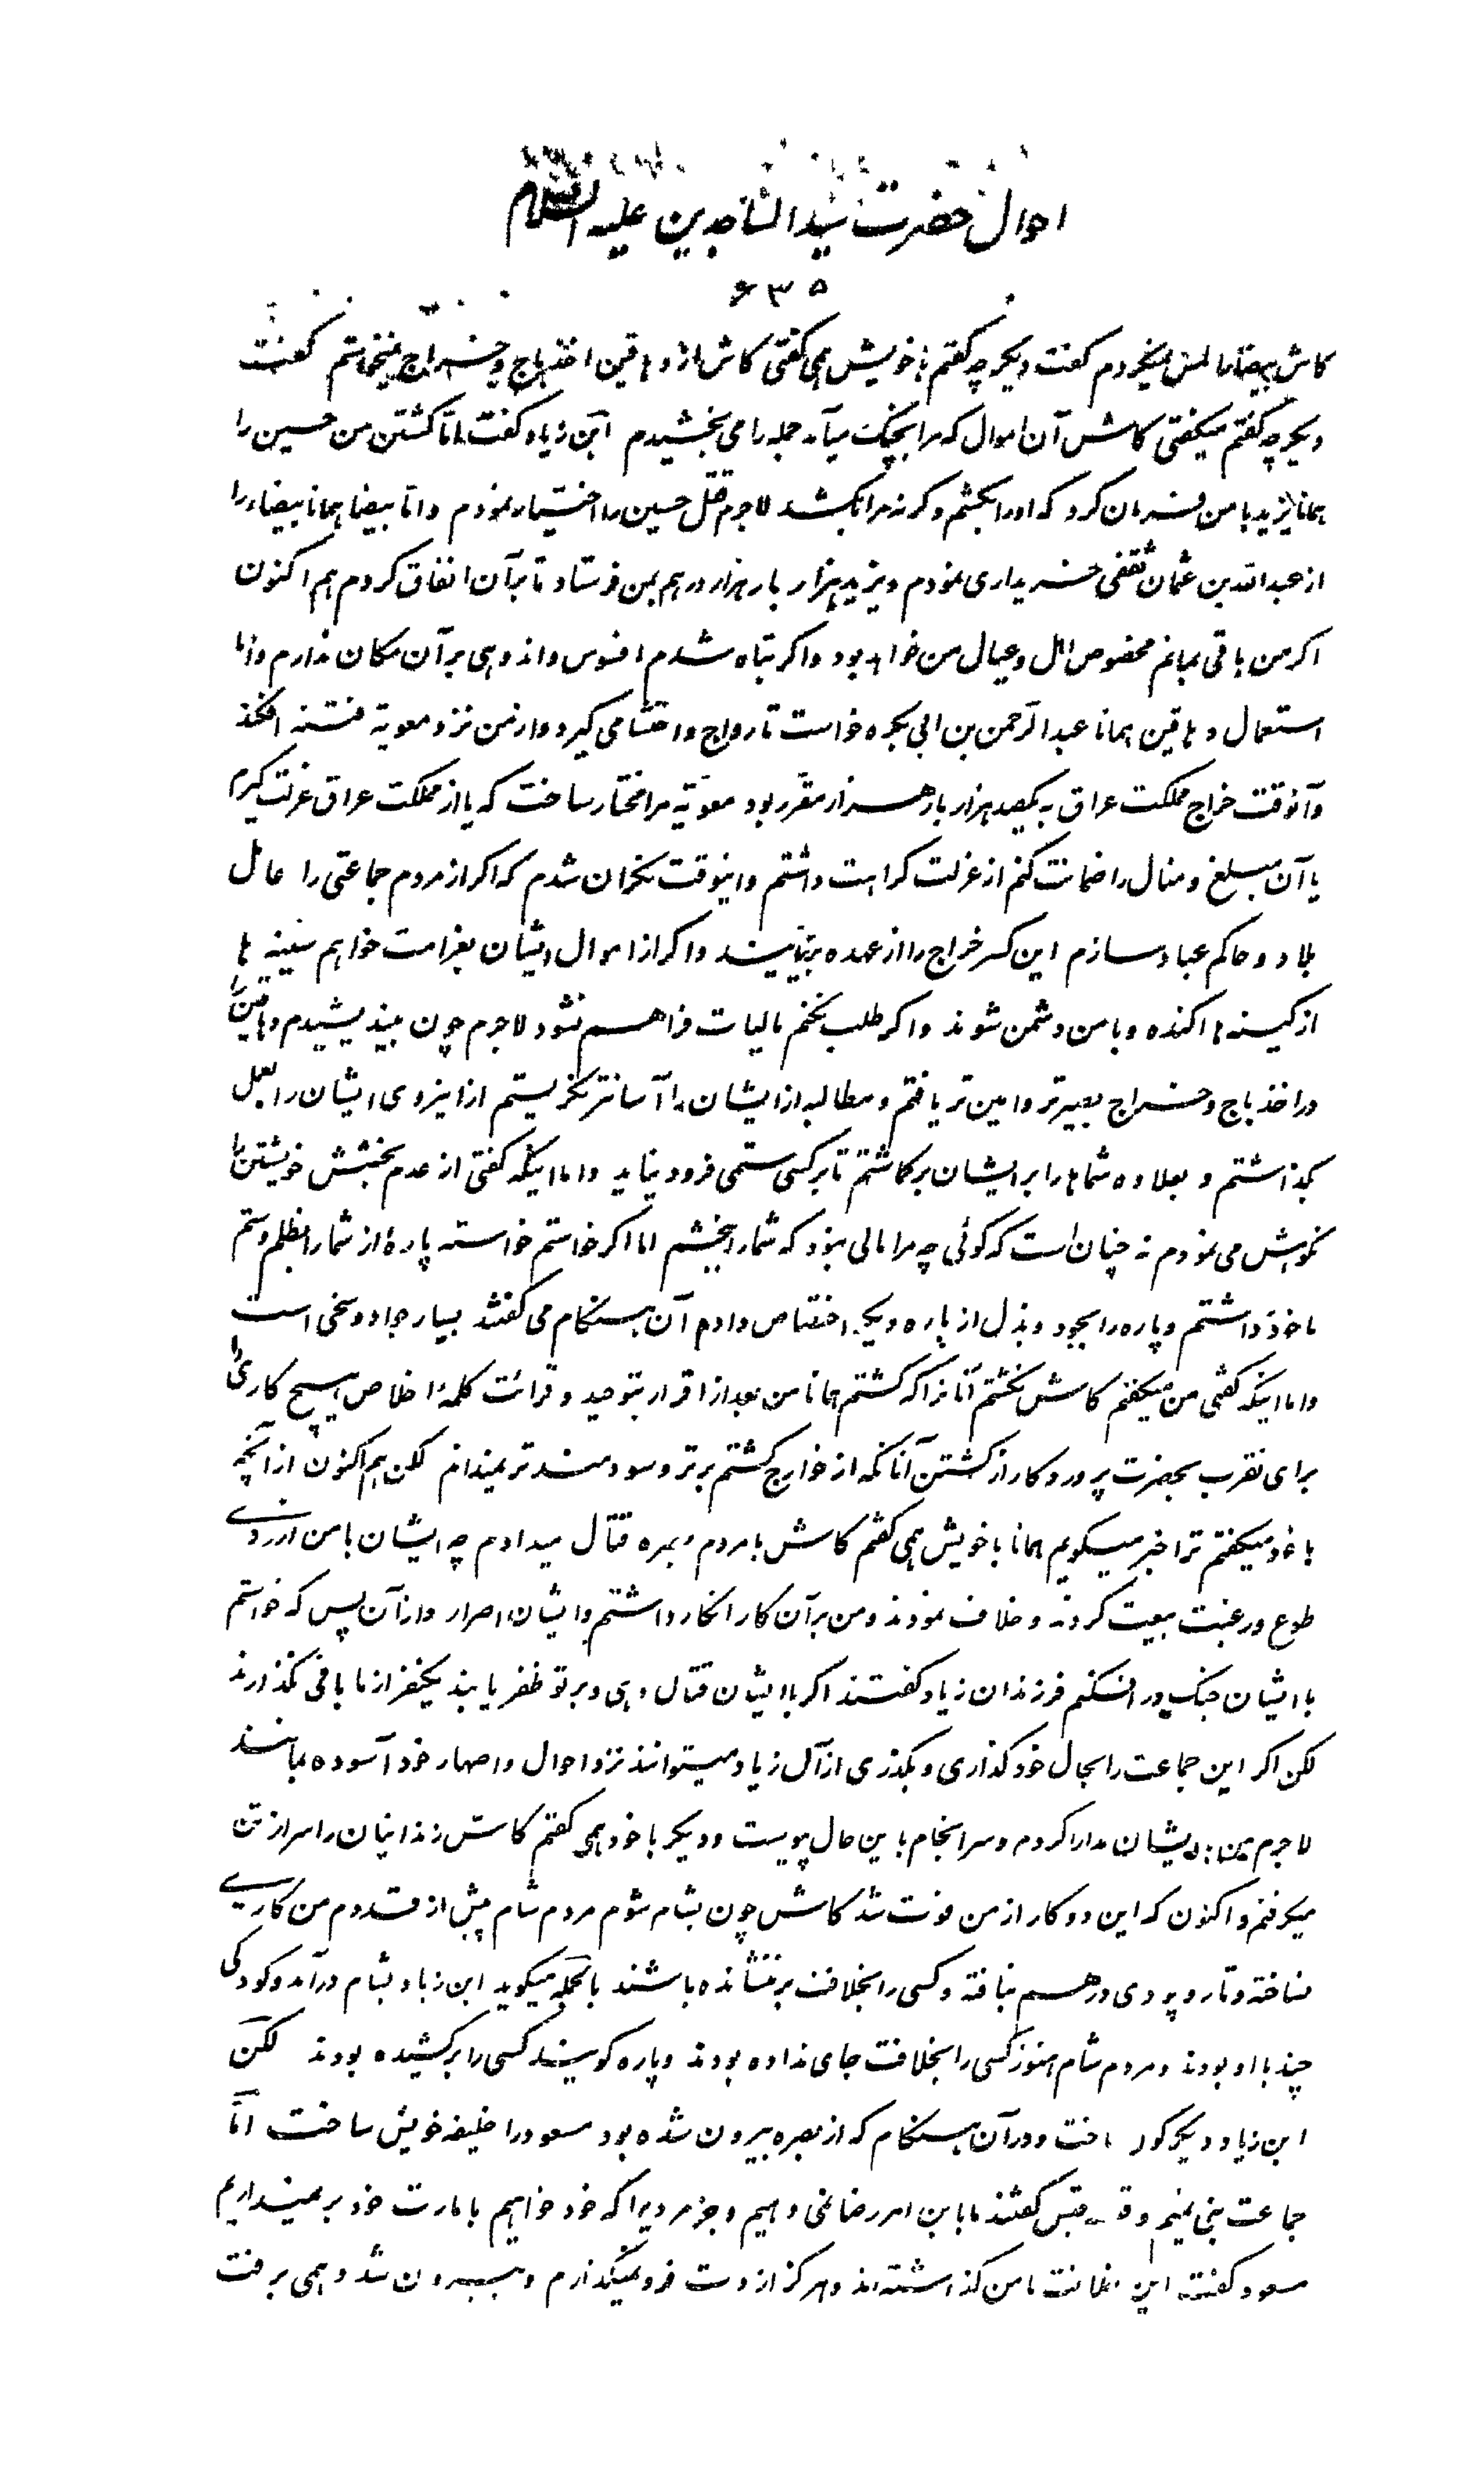 احوال حضرت سید الساجدین علیه السلام
۶۳۵
کاش بیضا را نمیخریدم گفت دیگر چه گفتم با خویش همی گفتی کاش از دهاقین اخذ باج و خراج نمیخواستم گفت
دیگر چه گفتم میگفتی کاش آن اموال که مرا بچنگ میآمد جمله را می بخشیدم ابن زیاد گفت اما کشتن من حسین را
همانا یزید با من فرمان کرد که او را بکشم و گرنه مرا بکشد لاجرم قتل حسین را اختیار نمودم و اما بیضا همانا بیضاء را
از عبدالله بن عثمان ثقفی خریداری نمودم و یزید هزار بار هزار درهم بمن فرستاد تا بر آن انفاق کردم هم اکنون
اگر من باقی بمانم مخصوص اهل و عیال من خواهد بود و اگر تباه شدم افسوس و اندوهی بر آن مکان ندارم و اما
استعمال دهاقین همانا عبدالرحمن بن ابی بکره خواست تا رواج و اختشامی گیرد و از من نزد معویة فتنه افکند
و آنوقت خراج مملکت عراق به یکصد هزار بار هزار مقرر بود معویة مرا مختار ساخت که یا از مملکت عراق عزلت گیرم
یا آن مبلغ و منال را ضمانت کنم از عزلت کراهت داشتم و اینوقت نگران شدم که اگر از مردم جماعتی را عامل
بلاد و حاکم عباد سازم این کسر خراج را از عهده برنیایند و اگر از اموال ایشان بغرامت خواهم سینه ها
از کینه ها اکنده و با من دشمن شوند و اگر طلب نکنم مالیات فراهم نشود لاجرم چون بیندیشیدم دهاقین را
در اخذ باج و خراج بصیرتر و امین تر یافتم و مطالبه از ایشان را آسانتر نگریستم از اینروی ایشان را بعمل
بگذاشتم و بعلاوه شماها را بر ایشان برگماشتم تا بر کسی ستمی فرود نیاید و اما اینکه گفتی از عدم بخشش خویشتن را
نکوهش می نمودم نه چنان است که گوئی چه مرا مالی نبود که شما را بخشم اما اگر خواستم خواسته پارهٔ از شما را بظلم و ستم
ماخوذ داشتم و پاره را بجود و بذل از پاره دیگر اختصاص دادم آن هنگام می گفتند بسیار جواد و سخی است
و اما اینکه گفتی من میگفتم کاش نکشتم آنانرا که کشتم همانا من بعد از اقرار بتوحید و قرائت کلمهٔ اخلاص هیچ کاری را
برای تقرب بحضرت پروردگار از کشتن آنانکه از خوارج کشتم برتر و سودمند تر نمیدانم لکن هم اکنون از آنچه
با خود میگفتم ترا خبر میگویم همانا با خویش همی گفتم کاش با مردم بصره قتال میدادم چه ایشان با من از روی
طوع و رغبت بیعت کردند و خلاف نمودند و من بر آن کار انکار داشتم و ایشان اصرار و از آن پس که خواستم
با ایشان جنگ در افکنم فرزندان زیاد گفتند اگر با ایشان قتال دهی و بر تو ظفر یابند یکنفر از ما باقی نگذارند
لکن اگر این جماعت را بحال خود گذاری و بگذری از آل زیاد میتوانند نزد اخوال و اصهار خود آسوده بمانند
لاجرم من با ایشان مدارا کردم و سرانجام باین حال پیوست و دیگر با خود همی گفتم کاش زندانیان را سر از تن
میگرفتم و اکنون که این دو کار از من فوت شد کاش چون بشام شوم مردم شام پیش از قدوم من کاری
نساخته و تار و پودی در هم نبافته و کسی را بخلافت برننشانده باشند بالجمله میگوید ابن زیاد بشام درآمد و کودکی
چند با او بودند و مردم شام هنوز کسی را بخلافت جای نداده بودند و پاره گویند کسی را برکشیده بودند لکن
ابن زیاد دیگرگون ساخت و در آن هنگام که از بصره بیرون شده بود مسعود را خلیفه خویش ساخت اما
جماعت بنی تمیم و قیس گفتند ما باین امر رضا نمی دهیم و جز مردیرا که خود خواهیم بامارت خود برنمیداریم
مسعود گفت این خلافت با من گذاشته اند و هرگز از دست فرو نمیگذارم و بیرون شد و همی برفت